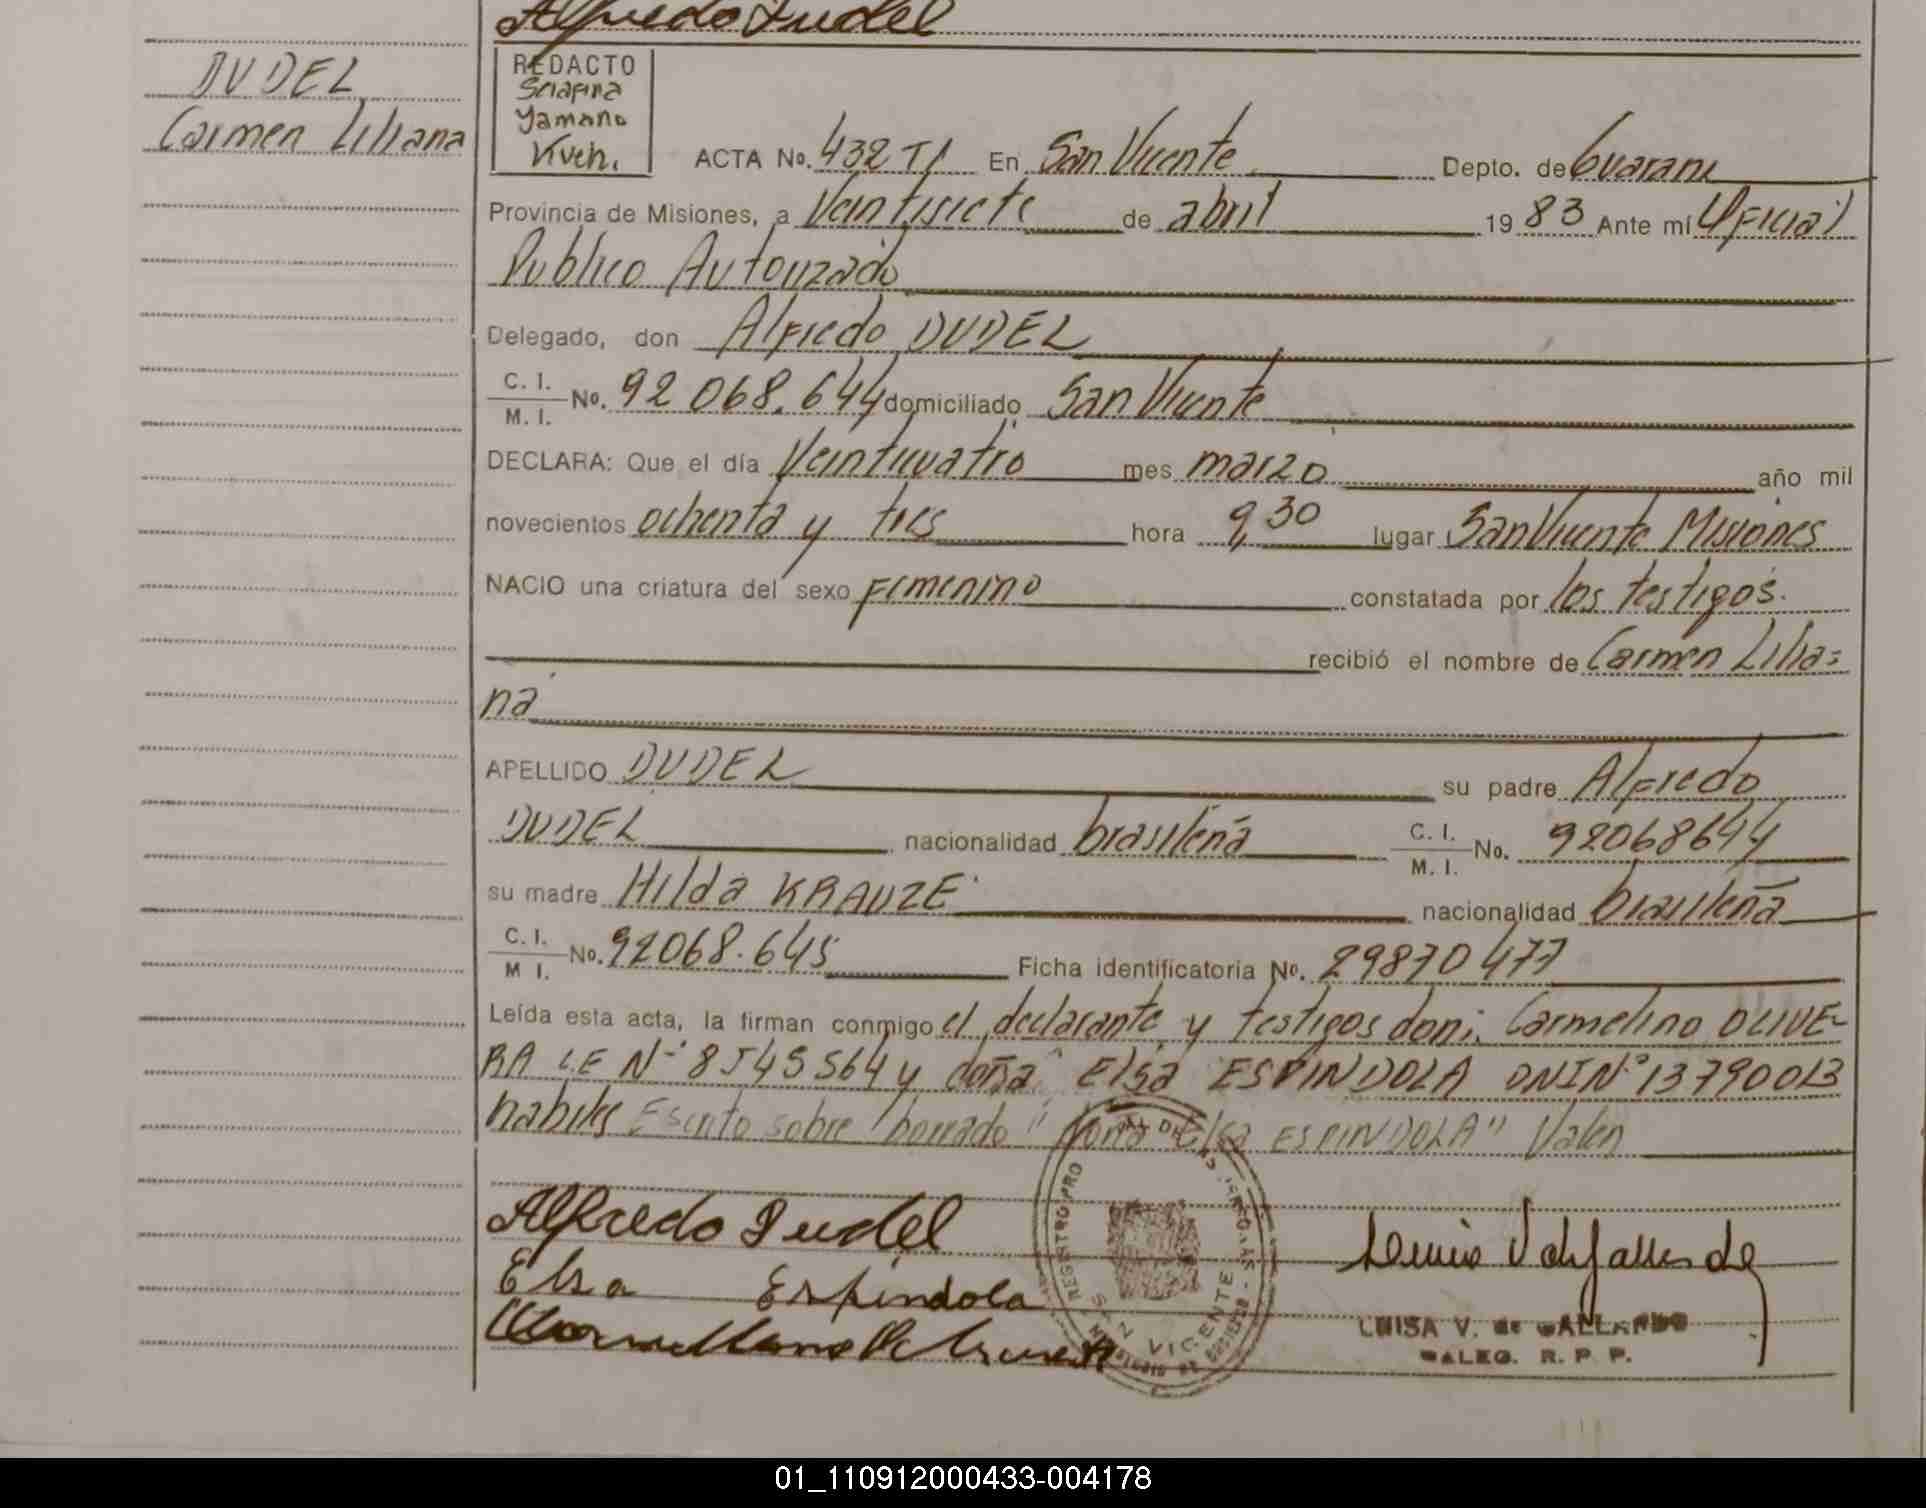 Alfredo Dudel
DUDEL
Carmen Liliana
REDACTO
Yamano
ACTA No. 432 TI En San Vicente Depto. de Guarani
Provincia de Misiones, a Veintisiete de abril 1983 Ante mí Oficial
Publico Autorizado
Delegado, don Alfredo DUDEL
C. I.
M. I. No. 92 068.644 domiciliado San Vicente
DECLARA: Que el día Veinticuatro mes marzo año mil
novecientos ochenta y tres hora 9,30 lugar San Vicente Misiones
NACIO una criatura del sexo Femenino constatada por los testigos.
recibió el nombre de Carmen Lilia=
na
APELLIDO DUDEL su padre Alfredo
DUDEL nacionalidad brasileña C. I. M. I. No. 92068644
su madre Hilda KRAUZE nacionalidad brasileña
C. I.
M I. No. 92068.645 Ficha identificatoria No. 29870477
Leída esta acta, la firman conmigo el declarante y testigos don: Carmelino OLIVE-
RA L.E Nº 8545564 y doña Elsa ESPINDOLA DNI Nº 13790013
habiles Escrito sobre borrado "doña Elsa ESPINDOLA" Valen
Alfredo Dudel
Elsa Espindola
REGISTRO PRO
SAN VICENTE
LUISA V. de GALLARDO
R. P. P.
01_110912000433-004178